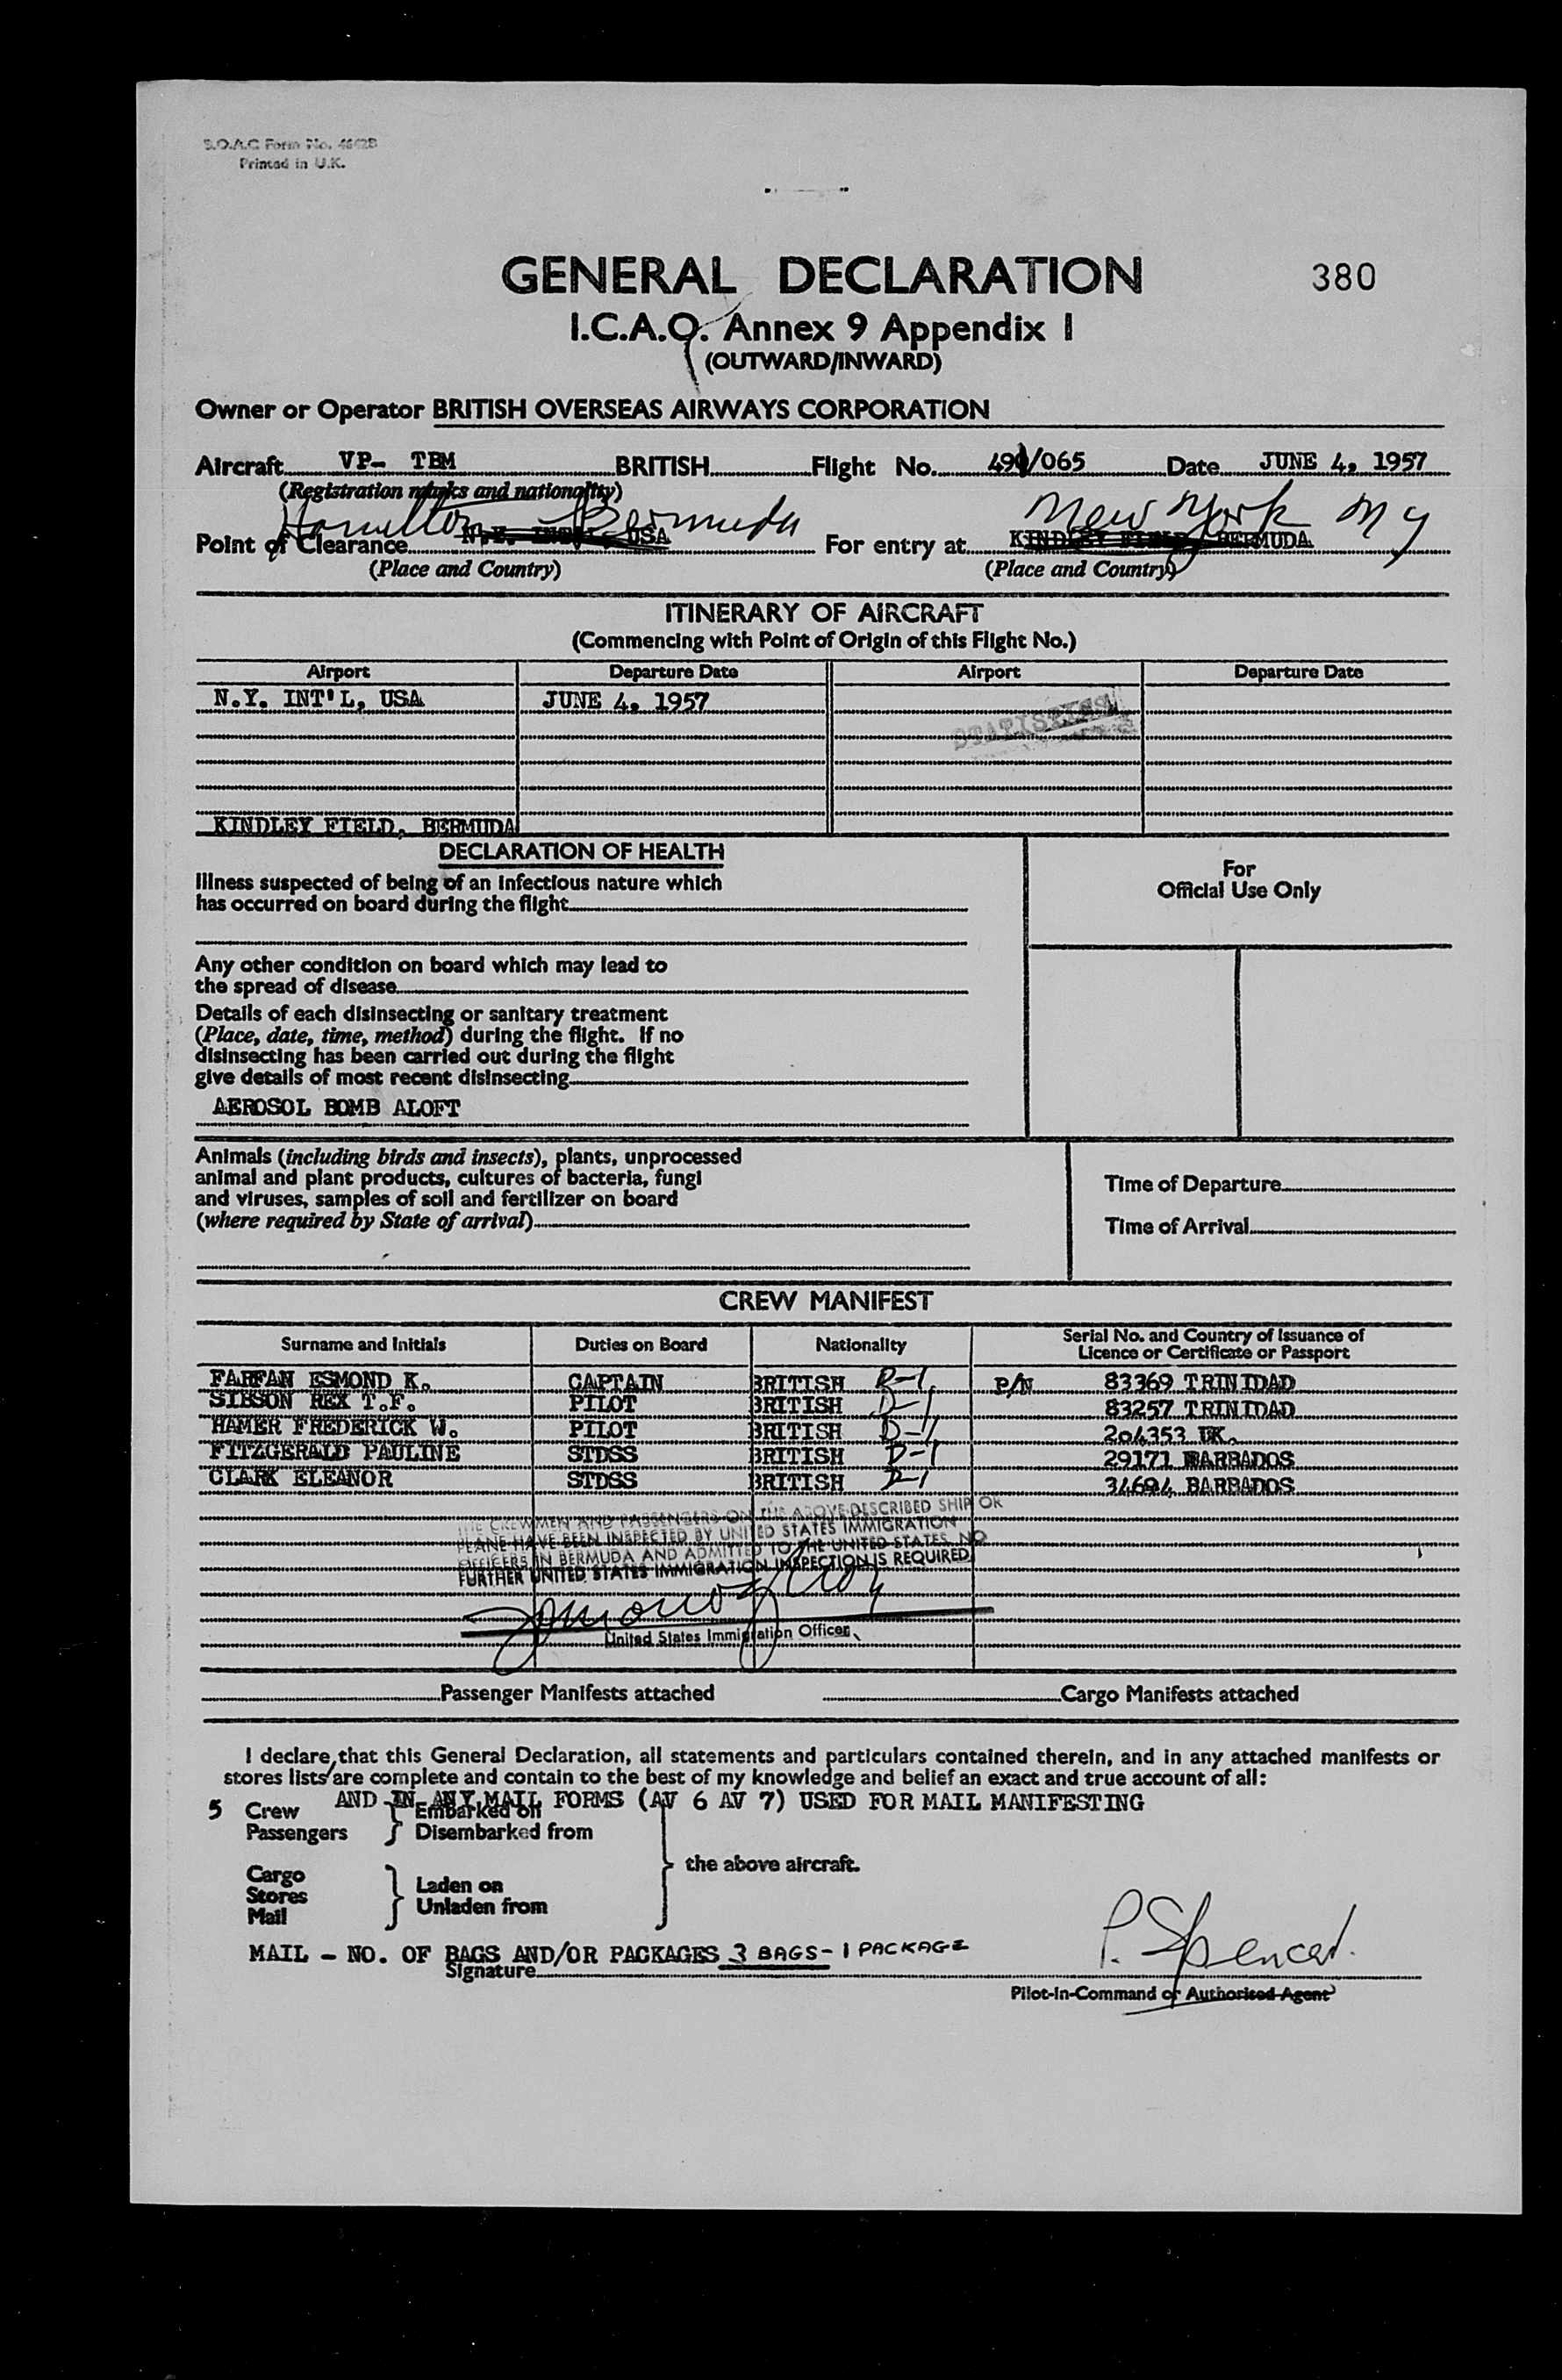 B.O.A.C. Form No.
Printed in U.K.
GENERAL DECLARATION 380
I.C.A.O. Annex 9 Appendix I
(OUTWARD/INWARD)
Owner or Operator BRITISH OVERSEAS AIRWAYS CORPORATION
Aircraft VP- TBM BRITISH Flight No. /065 Date JUNE 4, 1957
(Registration marks and nationality)
Hamilton Bermuda New York NY
Point of Clearance N.Y. INT'L, USA For entry at KINDLEY FIELD, BERMUDA
(Place and Country) (Place and Country)
ITINERARY OF AIRCRAFT
(Commencing with Point of Origin of this Flight No.)
Airport Departure Date Airport Departure Date
N.Y. INT'L, USA JUNE 4, 1957
STATISTICAL
KINDLEY FIELD, BERMUDA
DECLARATION OF HEALTH
Illness suspected of being of an infectious nature which
has occurred on board during the flight
For
Official Use Only
Any other condition on board which may lead to
the spread of disease
Details of each disinsecting or sanitary treatment
(Place, date, time, method) during the flight. If no
disinsecting has been carried out during the flight
give details of most recent disinsecting
AEROSOL BOMB ALOFT
Animals (including birds and insects), plants, unprocessed
animal and plant products, cultures of bacteria, fungi
and viruses, samples of soil and fertilizer on board
(where required by State of arrival)
Time of Departure
Time of Arrival
CREW MANIFEST
Surname and Initials Duties on Board Nationality Serial No. and Country of Issuance of
Licence or Certificate or Passport
FARFAN ESMOND K. CAPTAIN BRITISH D-1 P/N 83369 TRINIDAD
SIBSON REX T.F. PILOT BRITISH D-1 83257 TRINIDAD
HAMER FREDERICK W. PILOT BRITISH D-1 204353 UK.
FITZGERALD PAULINE STDSS BRITISH D-1 29171 BARBADOS
CLARK ELEANOR STDSS BRITISH D-1 34694 BARBADOS
THE CREWMEN AND PASSENGERS ON THE ABOVE DESCRIBED SHIP OR
PLANE HAVE BEEN INSPECTED BY UNITED STATES IMMIGRATION
OFFICERS IN BERMUDA AND ADMITTED TO THE UNITED STATES. NO
FURTHER UNITED STATES IMMIGRATION INSPECTION IS REQUIRED
United States Immigration Officer
Passenger Manifests attached Cargo Manifests attached
I declare that this General Declaration, all statements and particulars contained therein, and in any attached manifests or
stores lists are complete and contain to the best of my knowledge and belief an exact and true account of all:
AND IN ANY MAIL FORMS (AV 6 AV 7) USED FOR MAIL MANIFESTING
5 Crew Embarked on
Passengers Disembarked from
the above aircraft.
Cargo
Stores Laden on
Mail Unladen from
MAIL - NO. OF BAGS AND/OR PACKAGES 3 BAGS - 1 PACKAGE
Signature P. Spencer.
Pilot-in-Command or Authorised Agent